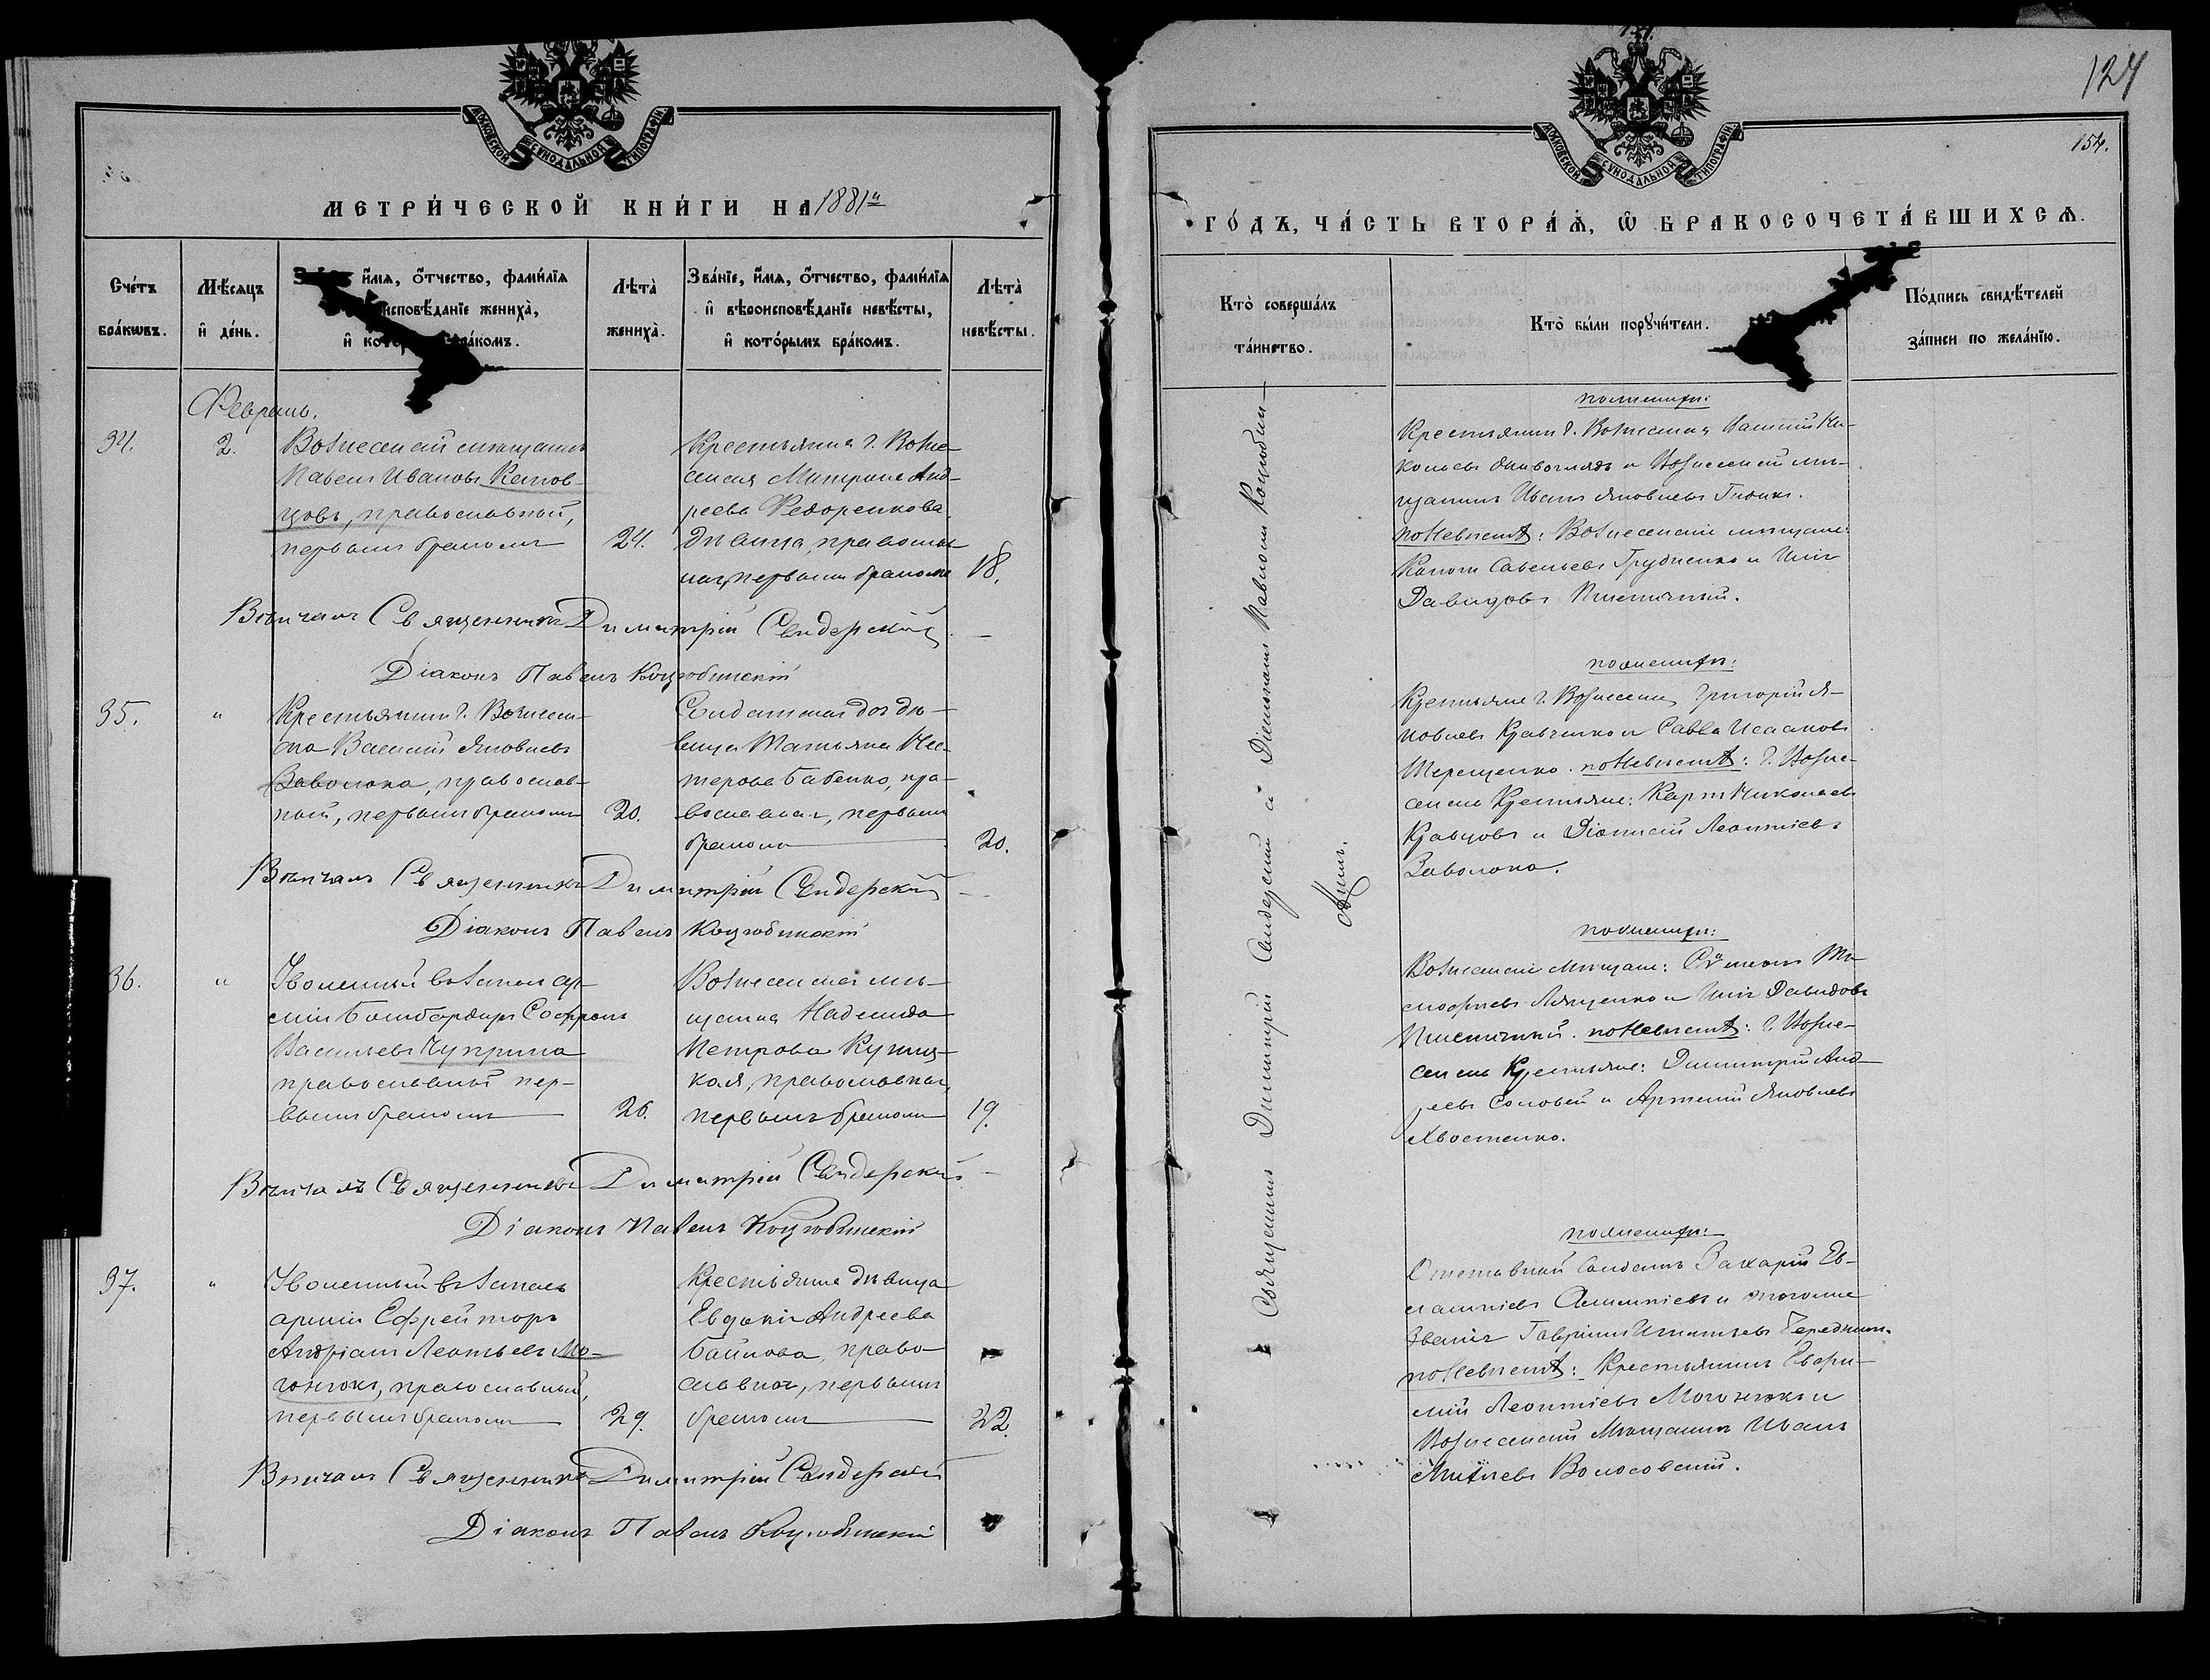 МОСКОВСКОЙ СѴНОДАЛЬНОЙ ТИПОГРАФІИ
МЕТРИ́ЧЕСКОЙ КНИ́ГИ НА 1881й
Сче́тъ бра́кѡвъ.
Мѣ́сяцъ и҆ де́нь.
и҆́мя, ѻ҆́тчество, фами́лїя
исповѣ́данїе женихà,
Лѣ́та женихà.
Зва́нїе, и҆́мя, ѻ҆́тчество, фами́лїя
и҆ вѣроисповѣ́данїе невѣ́сты,
и҆ кото́рымъ бра́комъ.
Лѣ́та невѣ́сты.
Февраль.
34.
2.
Вознесенскій мѣщанинъ
Павелъ Ивановъ
православный,
первымъ бракомъ
24.
Крестьянка г. Возне-
сенска Митрона Анд-
реева Федоренкова
дѣвица, православ-
ная, первымъ бракомъ
18.
Вѣнчалъ Священникъ Димитрій Сендерскій
Діаконъ Павелъ Коцюбинскій
35.
"
Крестьянинъ г. Вознесен-
ска Василій Яковлевъ
Заволока, православ-
ный, первымъ бракомъ
20.
Солдатская дочь дѣ-
вица Татьяна Нес-
терова Бабенко, пра-
вославная, первымъ
бракомъ
20.
Вѣнчалъ Священникъ Димитрій Сендерскій
Діаконъ Павелъ Коцюбинскій
36.
"
Уволенный въ запасъ ар-
міи Бомбардиръ Софронъ
Васильевъ Чуприна
православный пер-
вымъ бракомъ
26.
Вознесенская мѣ-
щанка Надежда
Петрова Купиц-
кая, православная,
первымъ бракомъ
19.
Вѣнчалъ Священникъ Димитрій Сендерскій
Діаконъ Павелъ Коцюбинскій
37.
"
Уволенный въ запасъ
арміи Ефрейторъ
Андріанъ Леонтьевъ Мо-
гонюкъ, православный,
первымъ бракомъ
29.
Крестьянка дѣвица
Евдокія Андреева
Байкова, право-
славная, первымъ
бракомъ
22.
Вѣнчалъ Священникъ Димитрій Сендерскій
Діаконъ Павелъ Коцюбинскій
124
154.
МОСКОВСКОЙ СѴНОДАЛЬНОЙ ТИПОГРАФІИ
ГО́ДЪ, ЧА́СТЬ ВТОРА́Ѧ, Ѡ҆ БРАКОСОЧЕТА́ВШИХСѦ.
Кто̀ соверша́лъ та́инство.
Кто̀ бы́ли порꙋчи́тели.
По́дпись свидѣ́телей за́писи по жела́нїю.
Священникъ Димитрій Сендерскій съ Діакономъ Павломъ Коцюбин-
скимъ.
по женихѣ:
Крестьянинъ г. Вознесенска Василій Ни-
колаевъ и Вознесенскій мѣ-
щанинъ Иванъ Яковлевъ
по невѣстѣ: Вознесенскіе мѣщане:
Савельевъ Грудненко и Илія
Давидовъ Пшеничный.
по женихѣ:
Крестьяне г. Вознесенска Григорій Я-
ковлевъ Кравченко и Савва Исааковъ
Терещенко. по невѣстѣ: г. Возне-
сенска Крестьяне: Карпъ Николаевъ
Кравцовъ и Діонисій Леонтіевъ
Заволока.
по женихѣ:
Вознесенскіе мѣщане: Сѵмеонъ Ти-
мофѣевъ Лященко и Илія Давидовъ
Пшеничный. по невѣстѣ: г. Возне-
сенска Крестьяне: Димитрій Анд-
реевъ Соловей и Артемій Яковлевъ
Хвостенко.
по женихѣ:
Отставной Солдатъ Захарій Ев-
и тогоже
званія Гавріилъ Игнатьевъ
по невѣстѣ: Крестьянинъ
Леонтіевъ Могонюкъ и
Вознесенскій Мѣщанинъ Иванъ
Волосовскій.